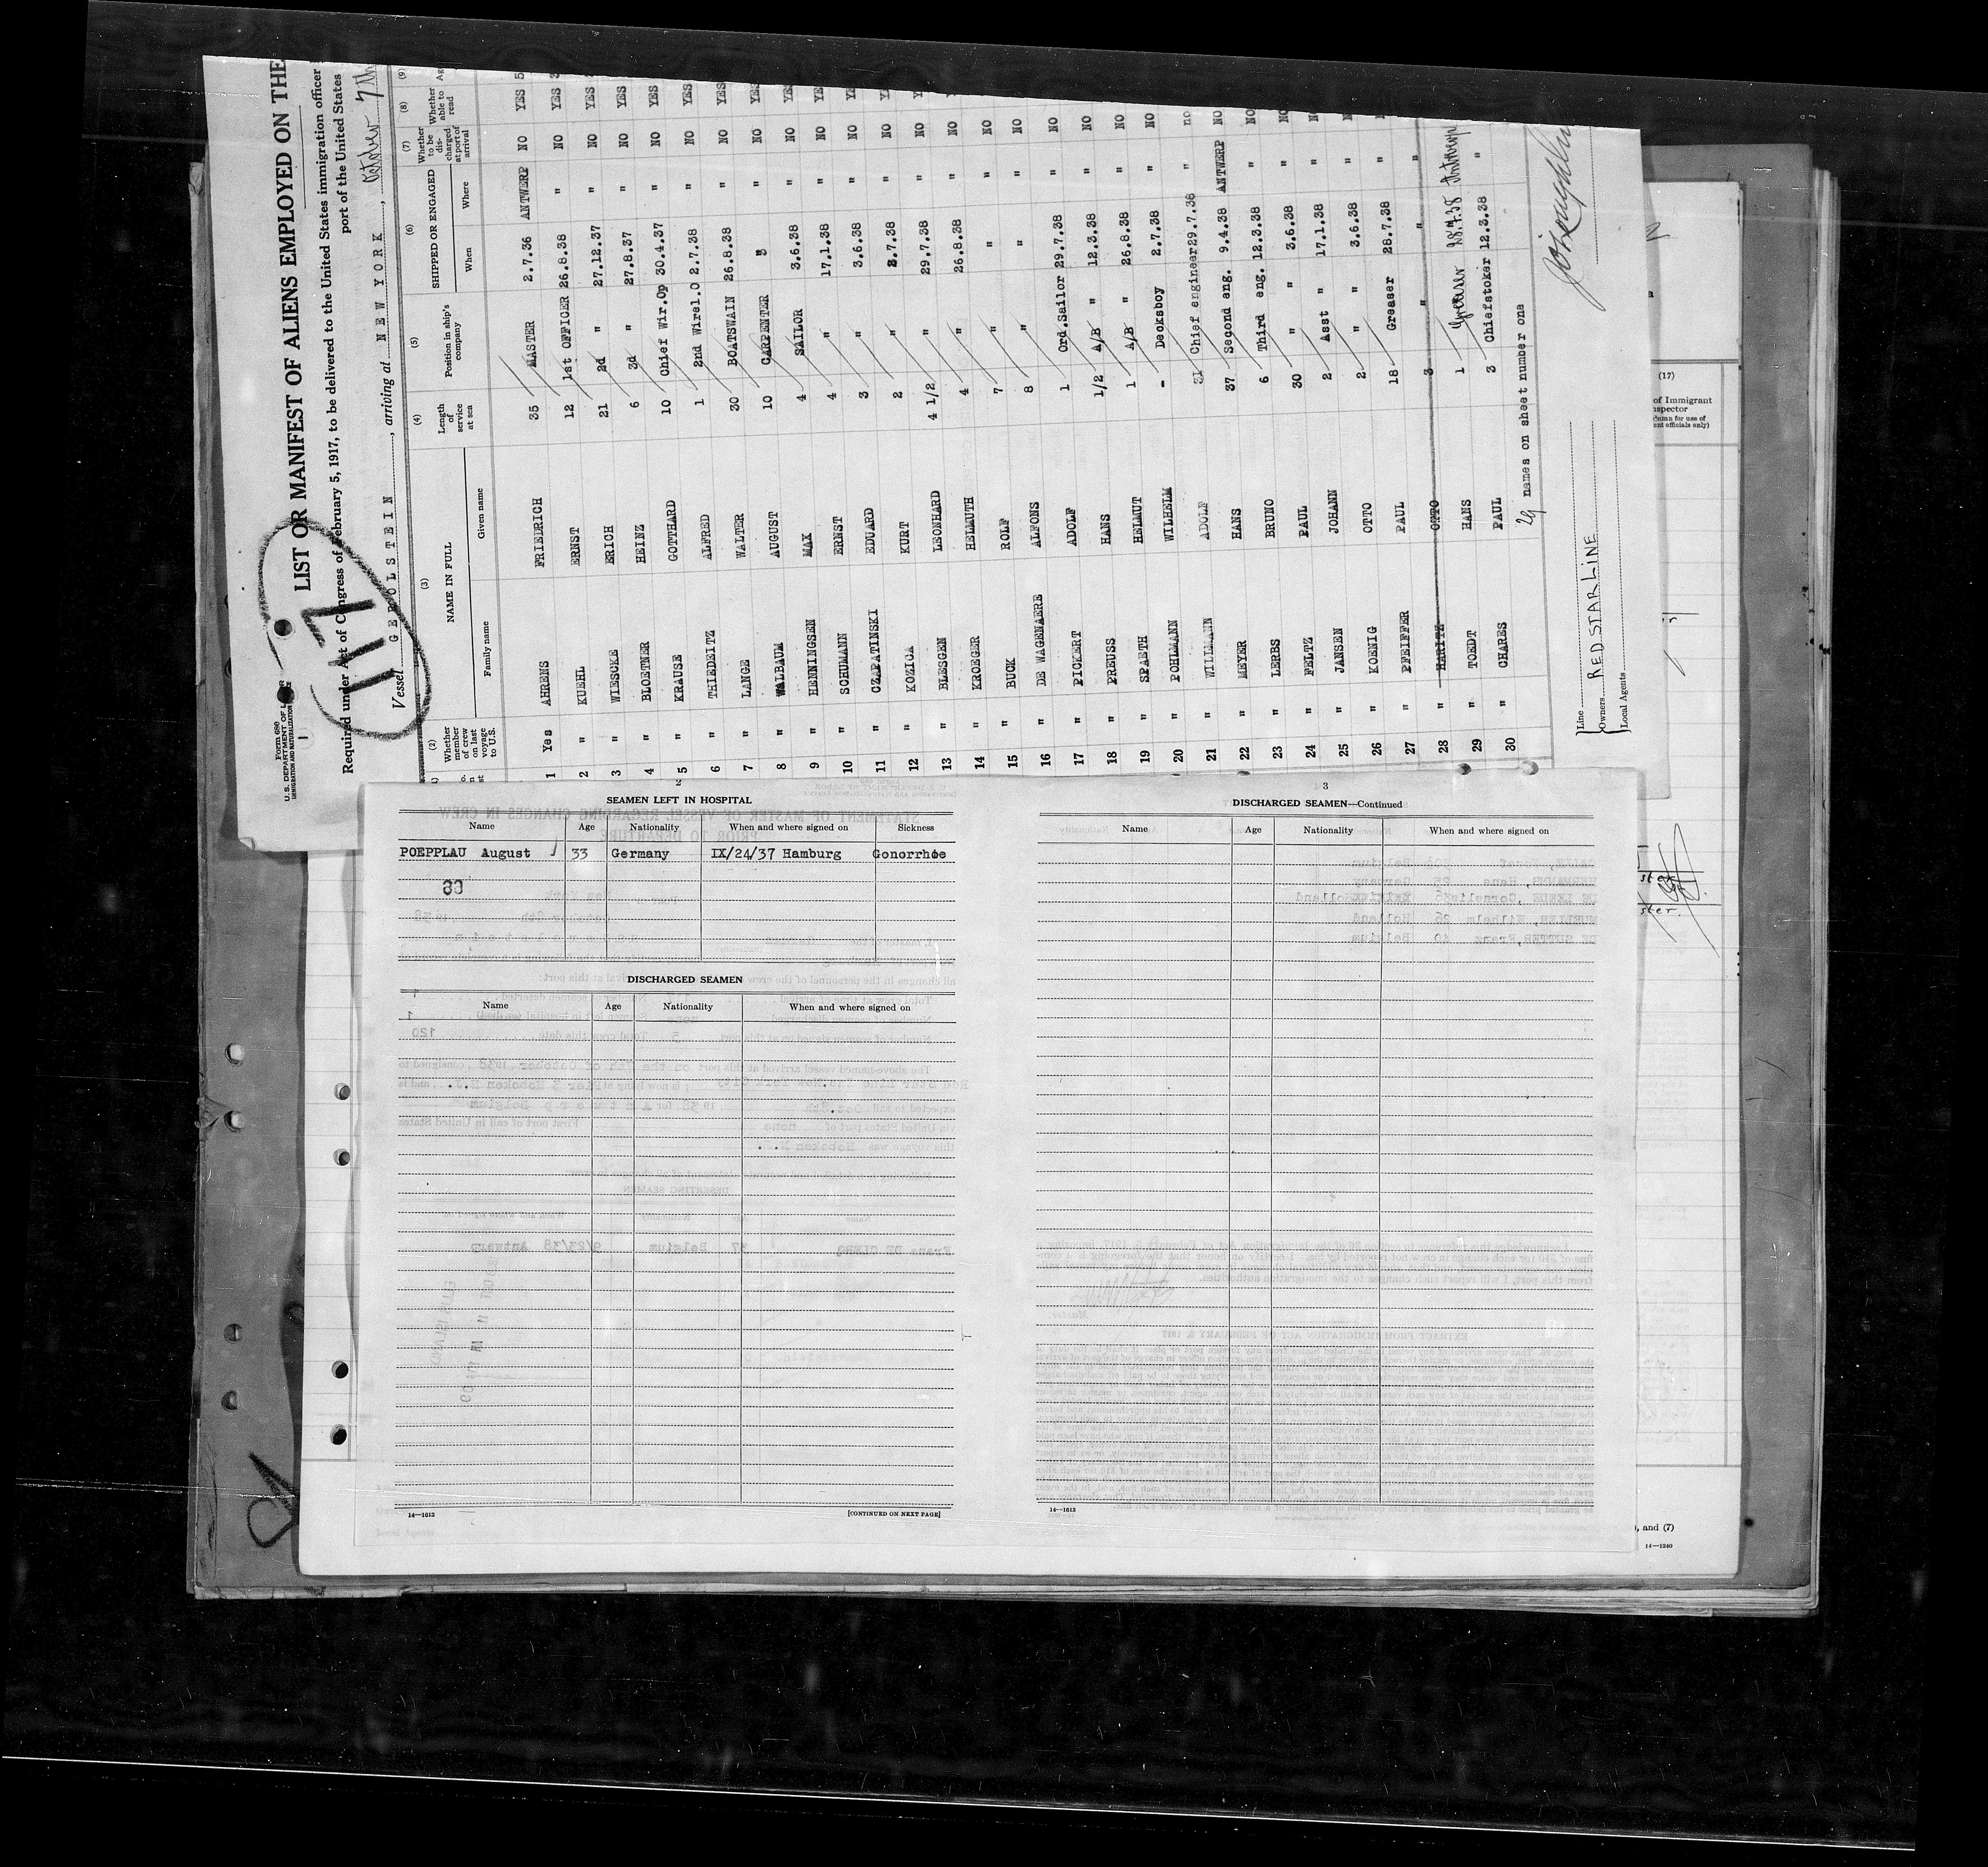 Form 680
U. S. DEPARTMENT OF
IMMIGRATION AND NATURALIZATION
1
LIST OR MANIFEST OF ALIENS EMPLOYED ON THE
Required under Act of Congress of February 5, 1917, to be delivered to the United States immigration officer
port of the United States
Vessel GEROLSTEIN, arriving at NEW YORK, October 7th
117
(2) (3) (4) (5) (6) (7) (8) (9)
Whether member of crew on last voyage to U.S. NAME IN FULL Family name Given name Length of service at sea Position in ship's company SHIPPED OR ENGAGED When Where Whether to be discharged at port of arrival Whether able to read
1 Yes AHRENS FRIEDRICH 35 MASTER 2.7.36 ANTWERP NO YES
2 " KUEHL ERNST 12 1st OFFICER 26.8.38 " NO YES
3 " WIESCKE ERICH 21 2d " 27.12.37 " NO YES
4 " BLOETNER HEINZ 6 3d " 27.8.37 " NO YES
5 " KRAUSE GOTTHARD 10 Chief Wir.Op 30.4.37 " NO YES
6 " THIEDEITZ ALFRED 1 2nd Wirel.O 2.7.38 " NO YES
7 " LANGE WALTER 30 BOATSWAIN 26.8.38 " NO YES
8 " WALBAUM AUGUST 10 CARPENTER " " NO YES
9 " HENNINGSEN MAX 4 SAILOR 3.6.38 " NO YES
10 " SCHUMANN ERNST 4 " 17.1.38 " NO YES
11 " CZAPATINSKI EDUARD 3 " 3.6.38 " NO
12 " KOZICA KURT 2 " 2.7.38 " NO
13 " BLESGEN LEONHARD 4 1/2 " 29.7.38 " NO
14 " KROEGER HELMUTH 4 " 26.8.38 " NO
15 " BUCK ROLF 7 " " " NO
16 " DE WAGENAERE ALFONS 8 " " " NO
17 " PICKERT ADOLF 1 Ord.Sailor 29.7.38 " NO
18 " PREUSS HANS 1/2 A/B " 12.3.38 " NO
19 " SPAETH HELMUT 1 A/B " 26.8.38 " NO
20 " POHLMANN WILHELM - Decksboy 2.7.38 " NO
21 " WILLMANN ADOLF 31 Chief engineer 29.7.38 " no
22 " MEYER HANS 37 Second eng. 9.4.38 ANTWERP NO
23 " LERBS BRUNO 6 Third eng. 12.3.38 " NO
24 " FELTZ PAUL 30 " 3.6.38 " NO
25 " JANSEN JOHANN 2 Asst " 17.1.38 "
26 " KOENIG OTTO 2 " " 3.6.38 "
27 " PFEIFFER PAUL 18 Greaser 28.7.38 "
28 " HARITZ OTTO 3 " " "
29 " TOEDT HANS 1 Greaser 28.7.38 Antwerp
30 " CHARES PAUL 3 Chiefstoker 12.3.38 "
29 names on sheet number one
Line
Owners RED STAR LINE
Local Agents
(17)
of Immigrant
14—1240
), and (7)
2
SEAMEN LEFT IN HOSPITAL
Name Age Nationality When and where signed on Sickness
POEPPLAU August 33 Germany IX/24/37 Hamburg Gonorrhoe
DISCHARGED SEAMEN
Name Age Nationality When and where signed on
14—1613
[CONTINUED ON NEXT PAGE]
3
DISCHARGED SEAMEN—Continued
Name Age Nationality When and where signed on
14—1613